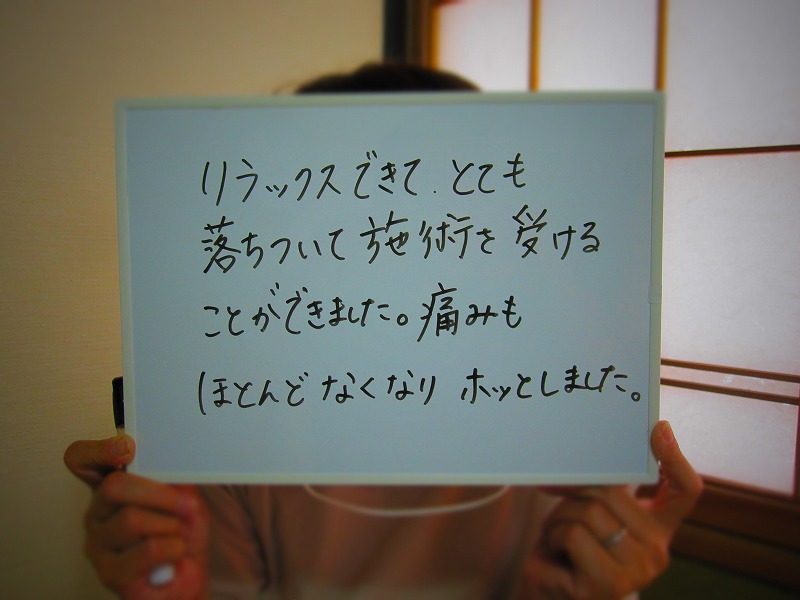 リラックスできて、とても
落ちついて施術を受ける
ことができました。痛みも
ほとんどなくなりホッとしました。